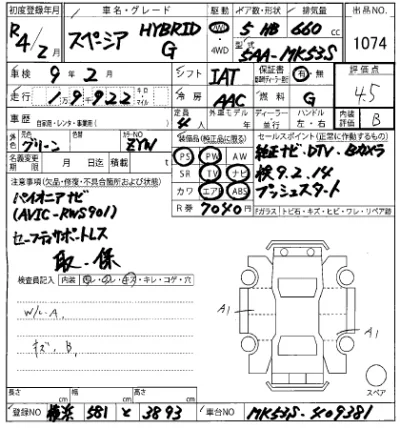 初度登録年月 車名・グレード 駆動 ドア数・形状 排気量 出品NO.
R4/2月 スペーシア HYBRID G 2WD 4WD 5 HB 660 cc 1074
型式 5AA-MK53S
車検 9年2月 シフト IAT 保証書 有・無 評価点
走行 1万9922 キロ マイル 冷房 AAC 燃料 G 4.5
車歴 自家用・レンタ・事業用( ) 定員 4人 外車モデル 年 ディーラー 並行 ハンドル 左・右 内装評価 B
外色 元色 グリーン カラーNO ZVW 装備品(純正品に限る) セールスポイント(正常に作動するもの)
名義変更期限 月 日迄 積載 t PS PW AW 純正ナビ・DTV・Bカメラ
注意事項(欠品・修復・不具合箇所および状態) SR TV ナビ 検9.2.14
パイオニアナビ カワ エアB ABS プッシュスタート
(AVIC-RWS901) R券 7040円 Fガラス トビ石・キズ・ヒビ・ワレ・リペア跡
セーフティサポートレス
取・保
検査員記入 内装 キレ・コゲ・穴
W/L・A、 A1
キズ、B、 A1
スペア
長さ cm 幅 cm 高さ cm
登録NO 横浜 581 と 3893 車台NO MK53S-409381